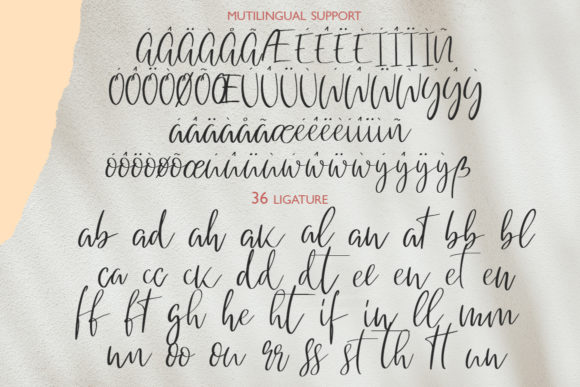 MUTILINGUAL SUPPORT
ÁÂÄÀÅÃÆÉÊËÈÍÎÏÌÑ
ÓÔÖÒØÕŒÚÛÜÙẂŴẄẀÝŶŸỲ
áâäàåãæéêëèíîïìñ
óôöòøõœúûüùẃŵẅẁýŷÿỳß
36 LIGATURE
ab ad ah ak al an at bb bl
ca cc ck dd dt ee en et en
ff ft gh he ht if in ll mm
nn oo ou rr ss st th tt un